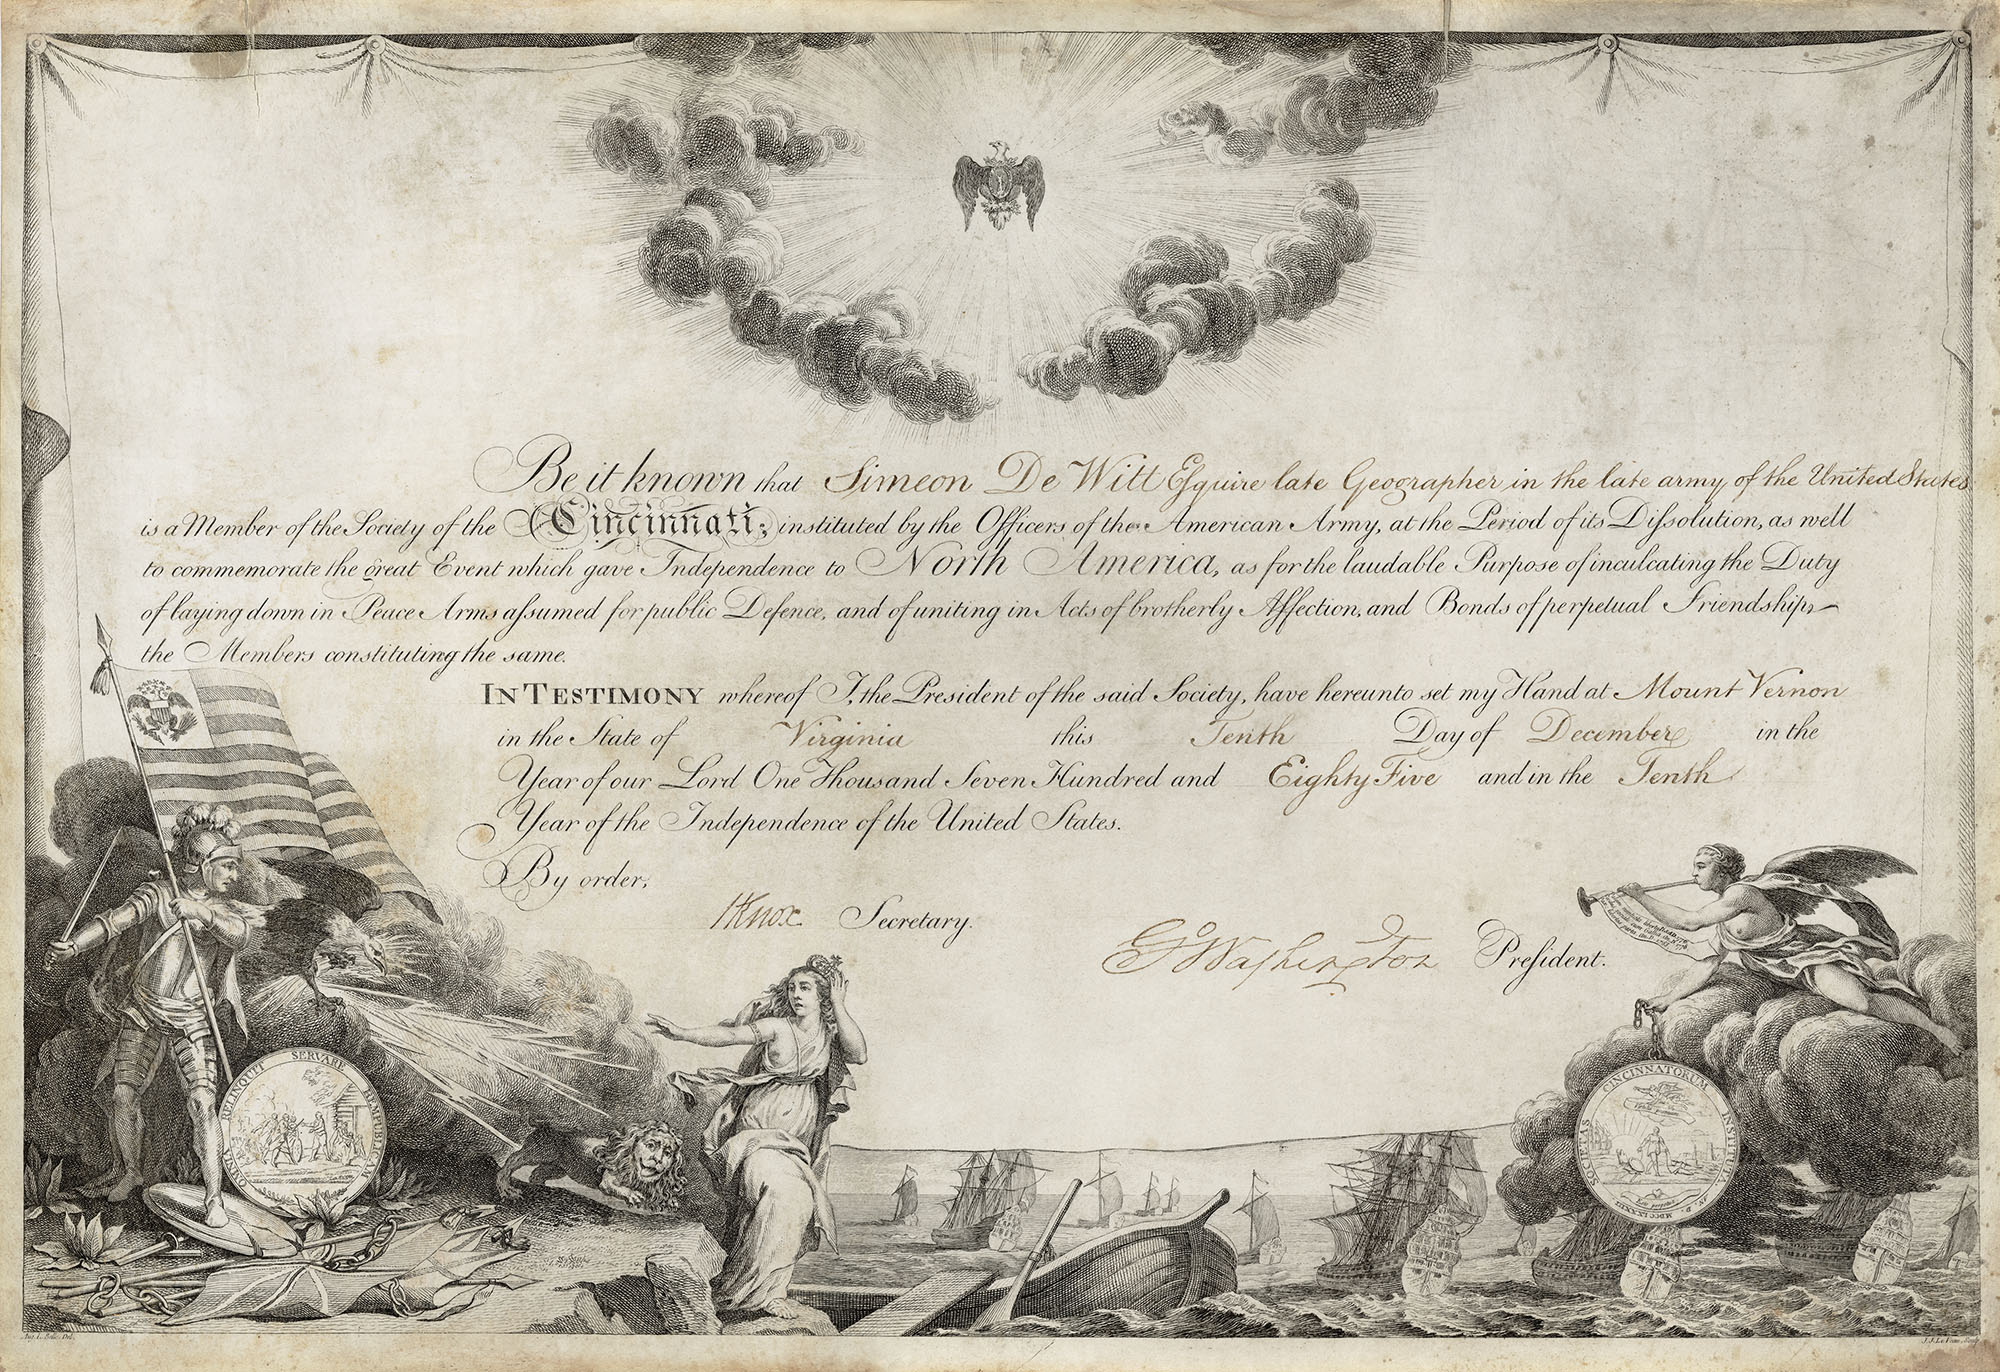 Be it known that Simeon De Witt Esquire late Geographer in the late army of the United States
is a Member of the Society of the Cincinnati; instituted by the Officers of the American Army, at the Period of its Dissolution, as well
to commemorate the great Event which gave Independence to North America, as for the laudable Purpose of inculcating the Duty
of laying down in Peace Arms assumed for public Defence, and of uniting in Acts of brotherly Affection, and Bonds of perpetual Friendship,
the Members constituting the same.
IN TESTIMONY whereof I, the President of the said Society, have hereunto set my Hand at Mount Vernon
in the State of Virginia this Tenth Day of December in the
Year of our Lord One Thousand Seven Hundred and Eighty Five and in the Tenth
Year of the Independence of the United States.
By order,
HKnox Secretary.
Go Washington President.
OMNIA RELINQUIT SERVARE REMPUBLICAM
SOCIETAS CINCINNATORUM INSTITUTA A. D. MDCCLXXXIII